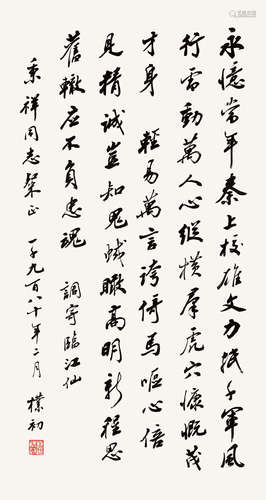 永憶當年秦上校雄文力抵千軍風
行雷動萬人心縱橫羣虎穴慷慨茂
才身 輕易萬言誇倚馬嘔心倍
見精誠豈知鬼蜮瞰高明新程思
舊轍應不負忠魂 調寄臨江仙
秉祥同志粲正 一千九百八十年二月 樸初